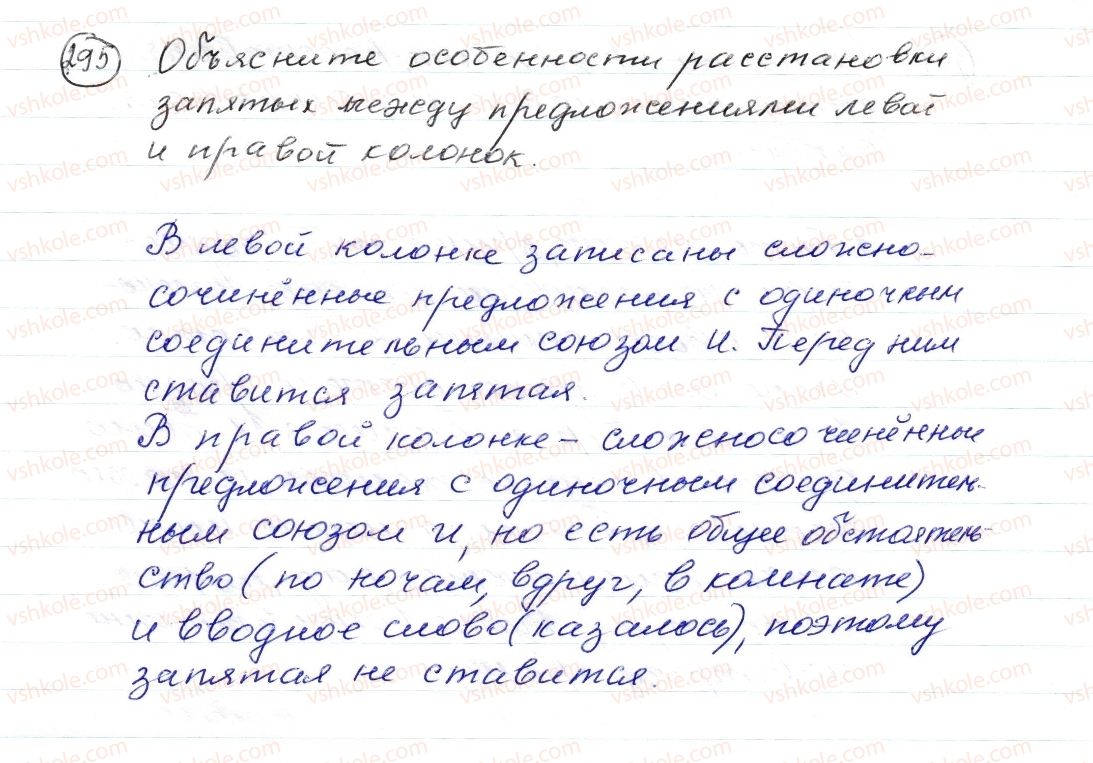 295 Объясните особенности расстановки
запятых между предложениями левой
и правой колонок.
В левой колонке записаны сложно-
сочинённые предложения с одиночным
соединительным союзом И. Перед ним
ставится запятая.
В правой колонке – сложносочинённые
предложения с одиночным соединитель-
ным союзом и, но есть общее обстоятель-
ство (по ночам, вдруг, в комнате)
и вводное слово (казалось), поэтому
запятая не ставится.